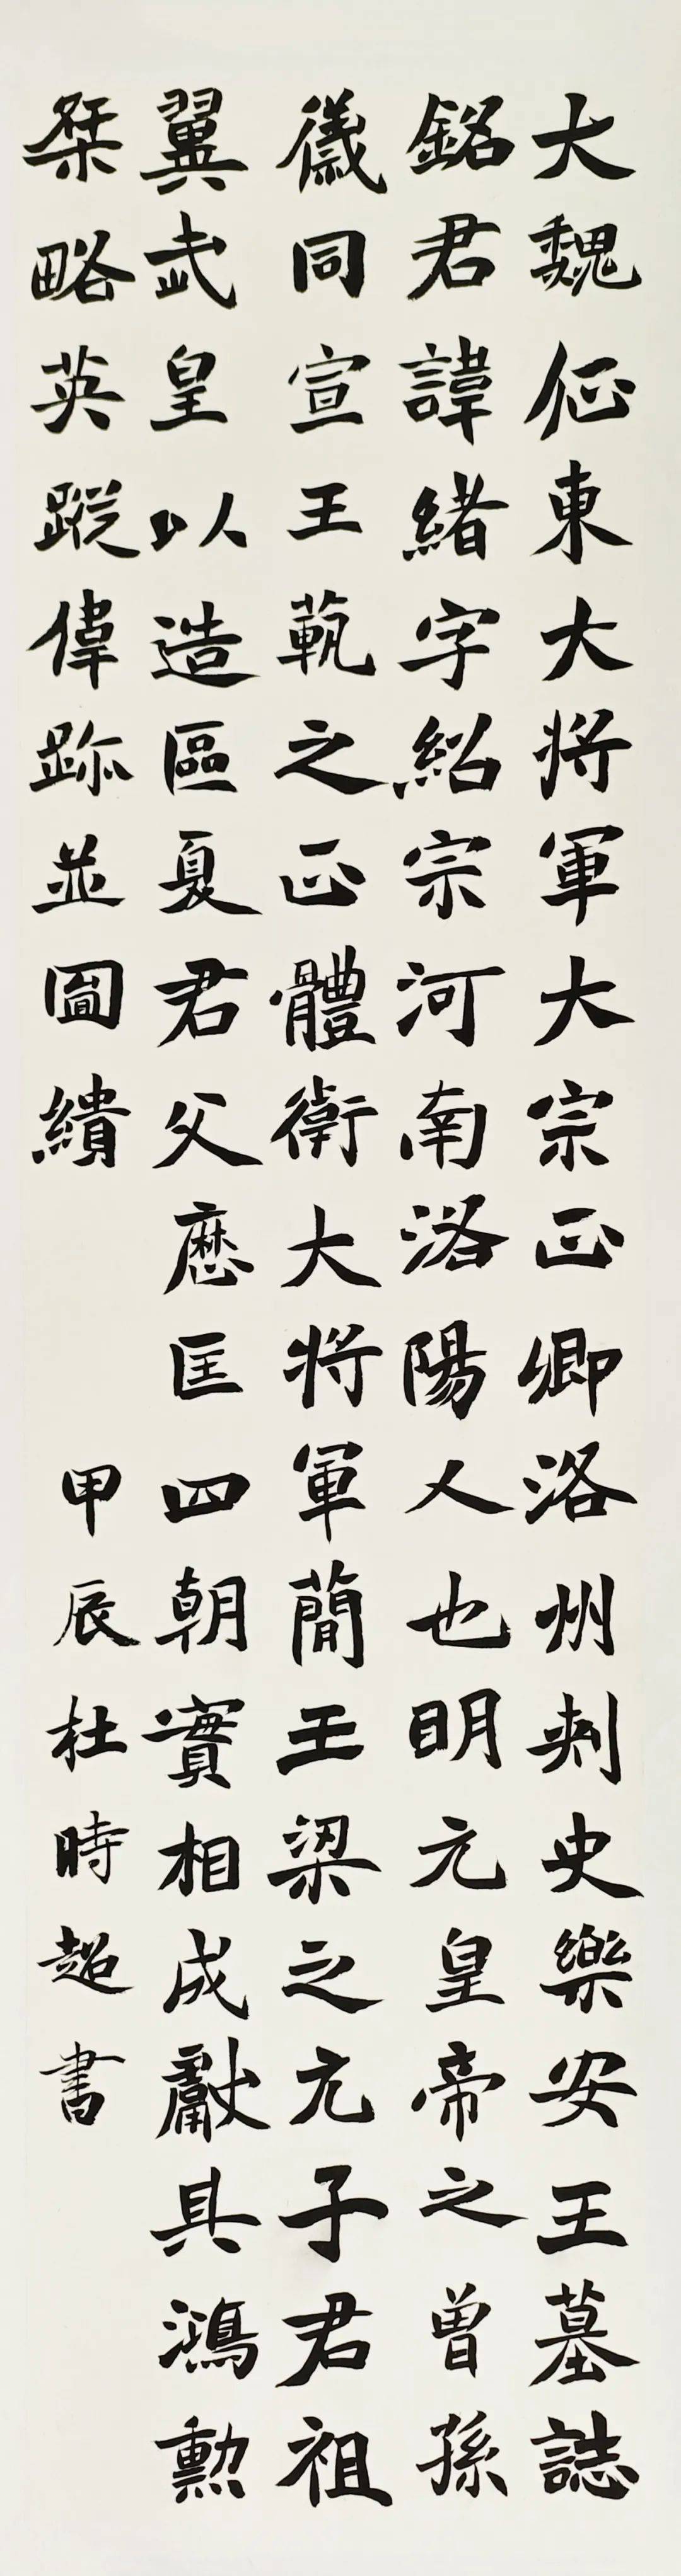 大魏征東大将軍大宗正卿洛州刺史樂安王墓誌
銘君諱緒字紹宗河南洛陽人也明元皇帝之曾孫
儀同宣王範之正體衛大将軍簡王梁之元子君祖
翼武皇以造區夏君父歷匡四朝實相成獻具鴻勲
桀略英蹤偉跡並圖績 甲辰杜時超書